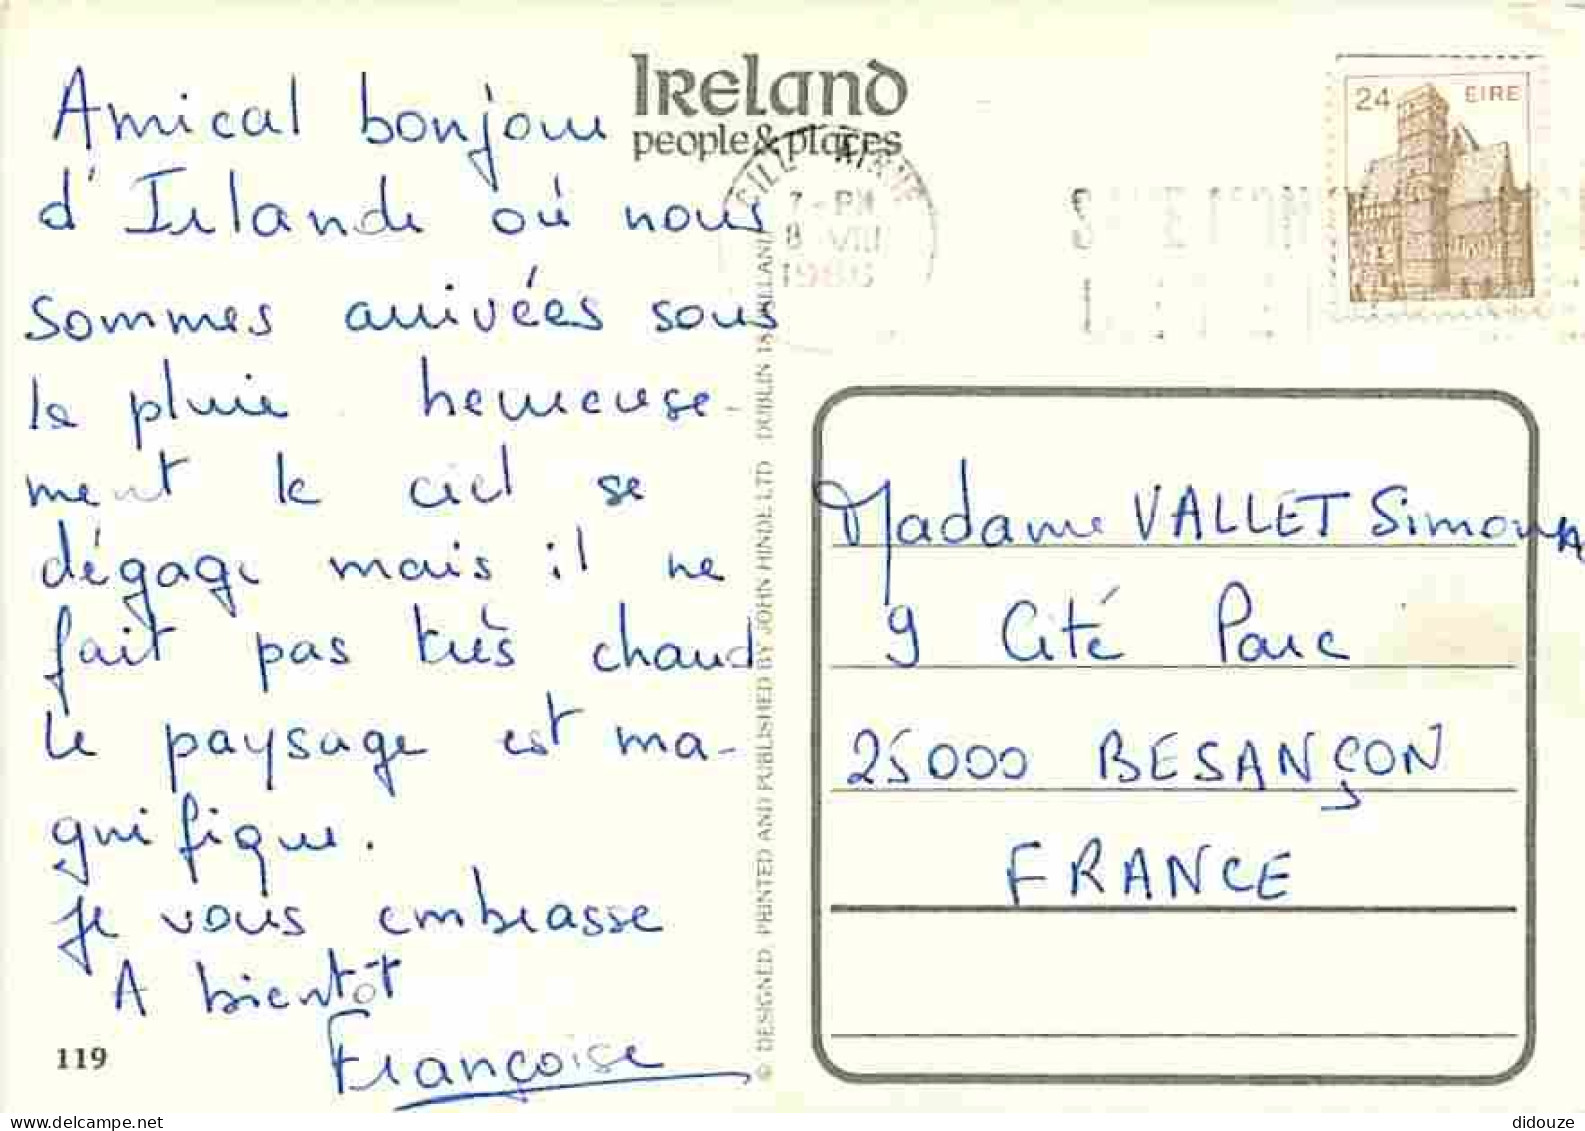 Ireland
people & places
24 EIRE
CILL AIRNE
7 - PM
8 VIII
Amical bonjour
d'Irlande où nous
sommes arrivées sous
la pluie. heureuse-
ment le ciel se
dégage mais il ne
fait pas très chaud
le paysage est ma-
gnifique.
Je vous embrasse
A bientôt
Françoise
119
© DESIGNED, PRINTED AND PUBLISHED BY JOHN HINDE LTD DUBLIN 18 IRELAND
Madame VALLET Simone
9 Cité Parc
25000 BESANÇON
FRANCE
didouze